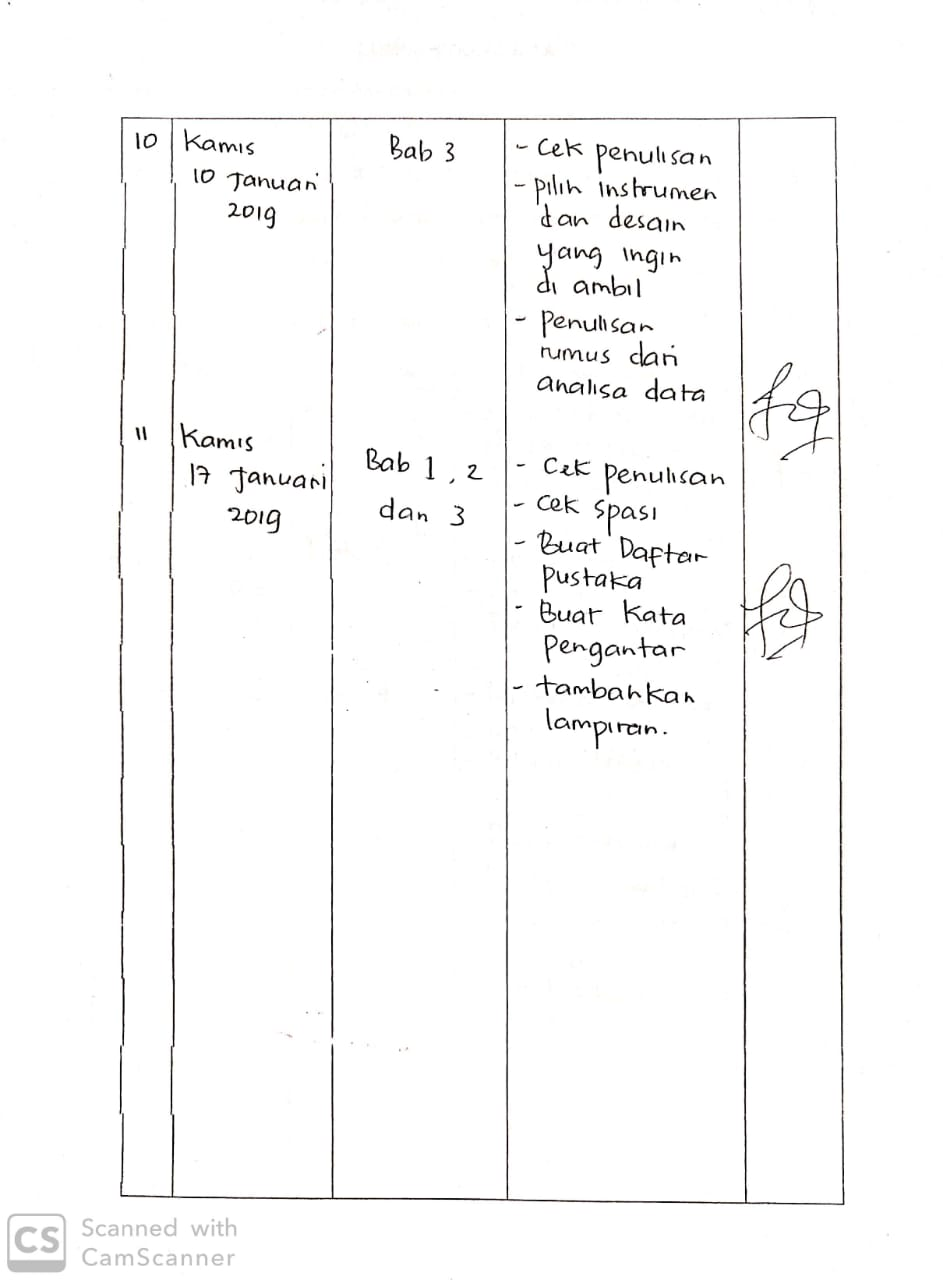 10 Kamis Bab 3 - Cek penulisan
10 Januari - pilih instrumen
2019 dan desain
yang ingin
di ambil
- Penulisan
rumus dari
analisa data
11 Kamis
17 Januari Bab 1, 2 - Cek penulisan
2019 dan 3 - cek spasi
- Buat Daftar
pustaka
- Buat Kata
Pengantar
- tambahkan
lampiran.
CS Scanned with
CamScanner